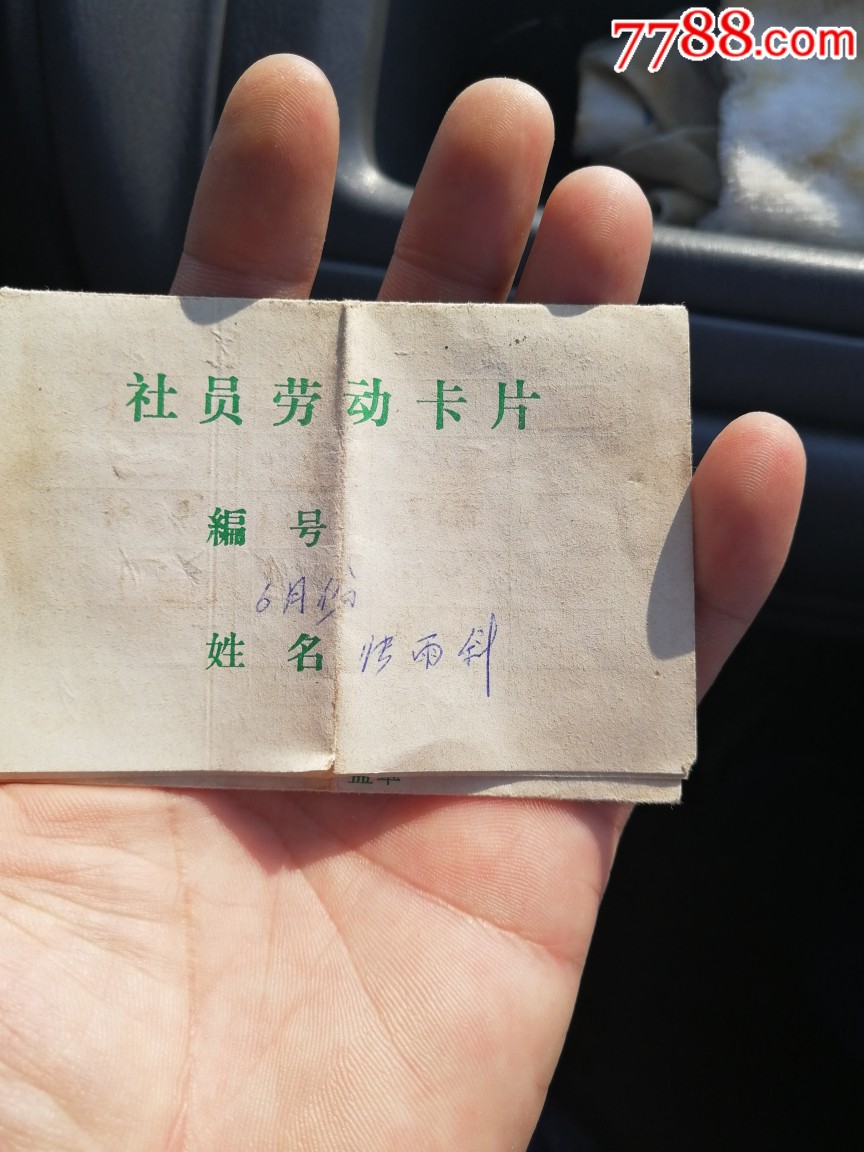 7788.com
社员劳动卡片
編号
6月份
姓名 雨斜